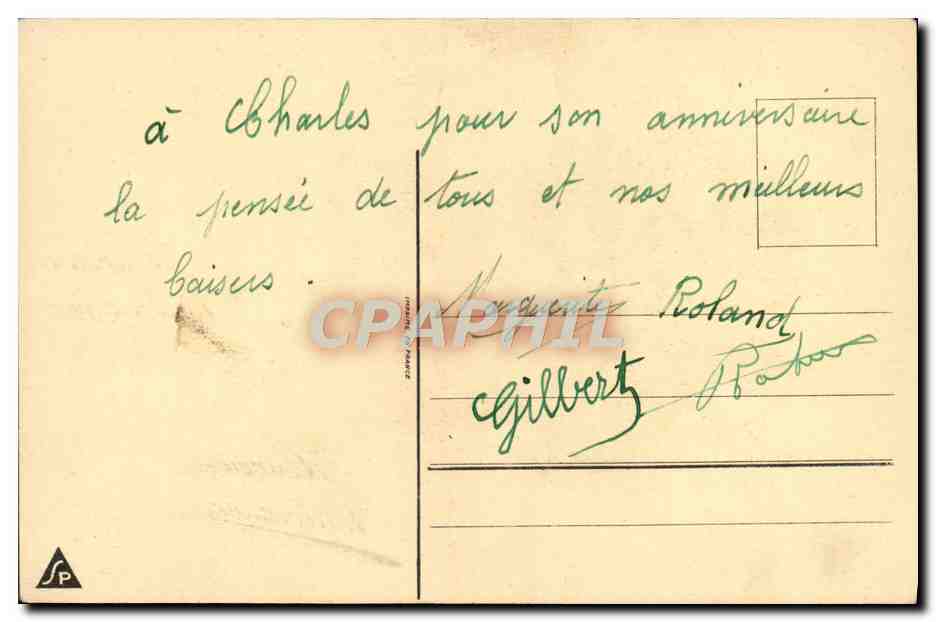 à Charles pour son anniversaire
la pensée de tous et nos meilleurs
baisers.
Marguerite Roland
Gilbert
IMPRIMÉ EN FRANCE
CPAPHIL
SP